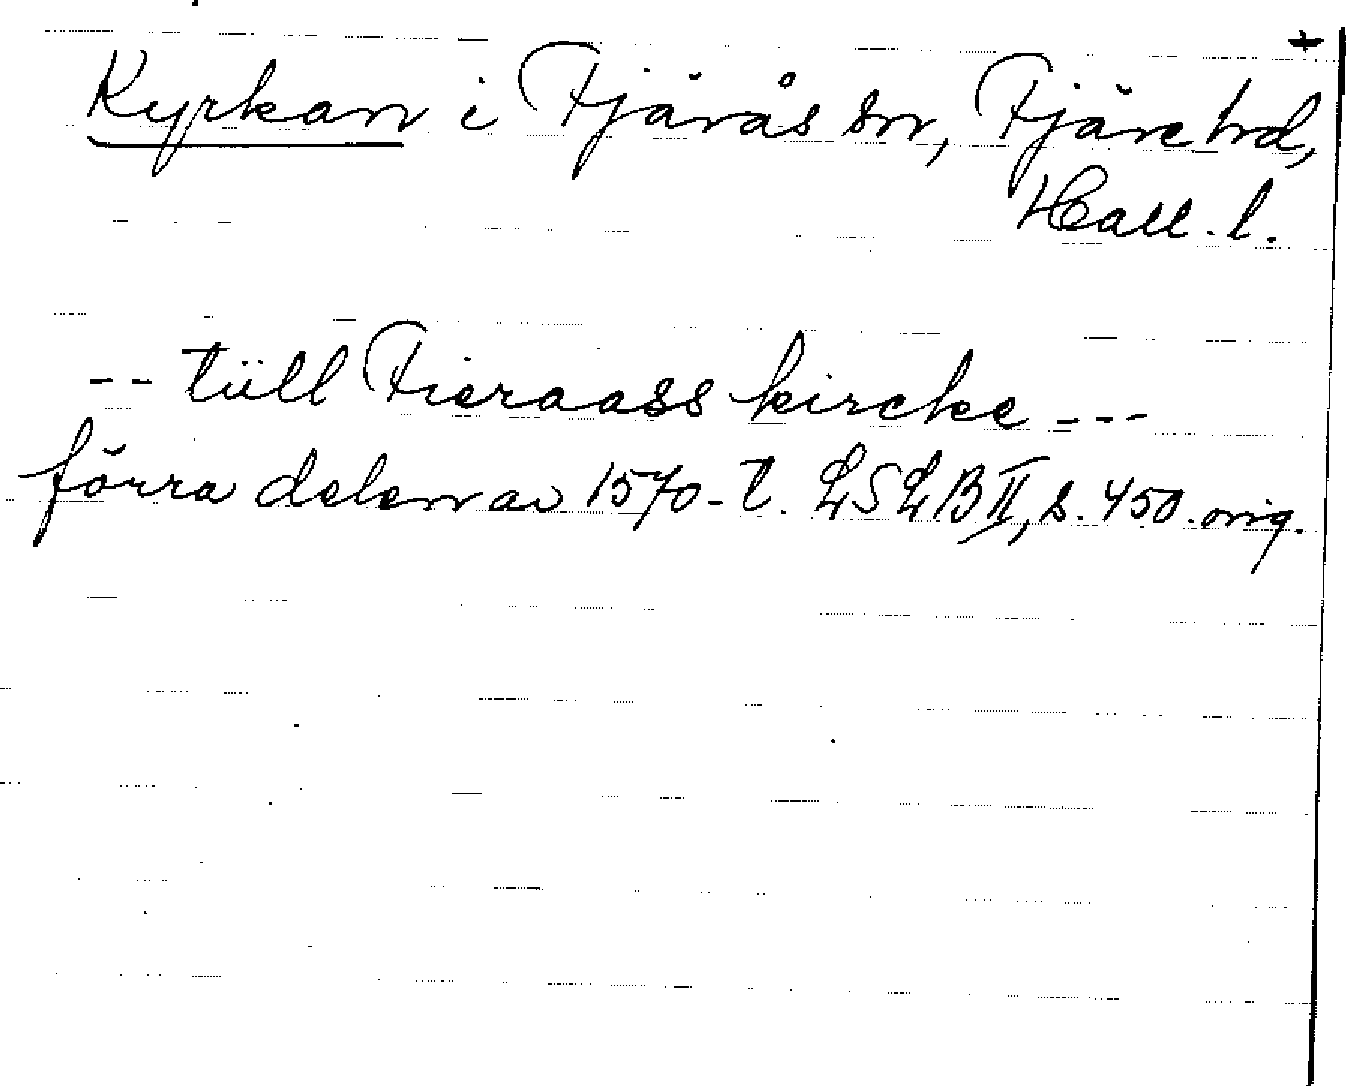 +
Kyrkan i Fjärås sn, Fjäre hd,
Hall. l.
-- tüll Fieraass kircke ---
förra delen av 1570-t. LSLB II, s. 450. orig.